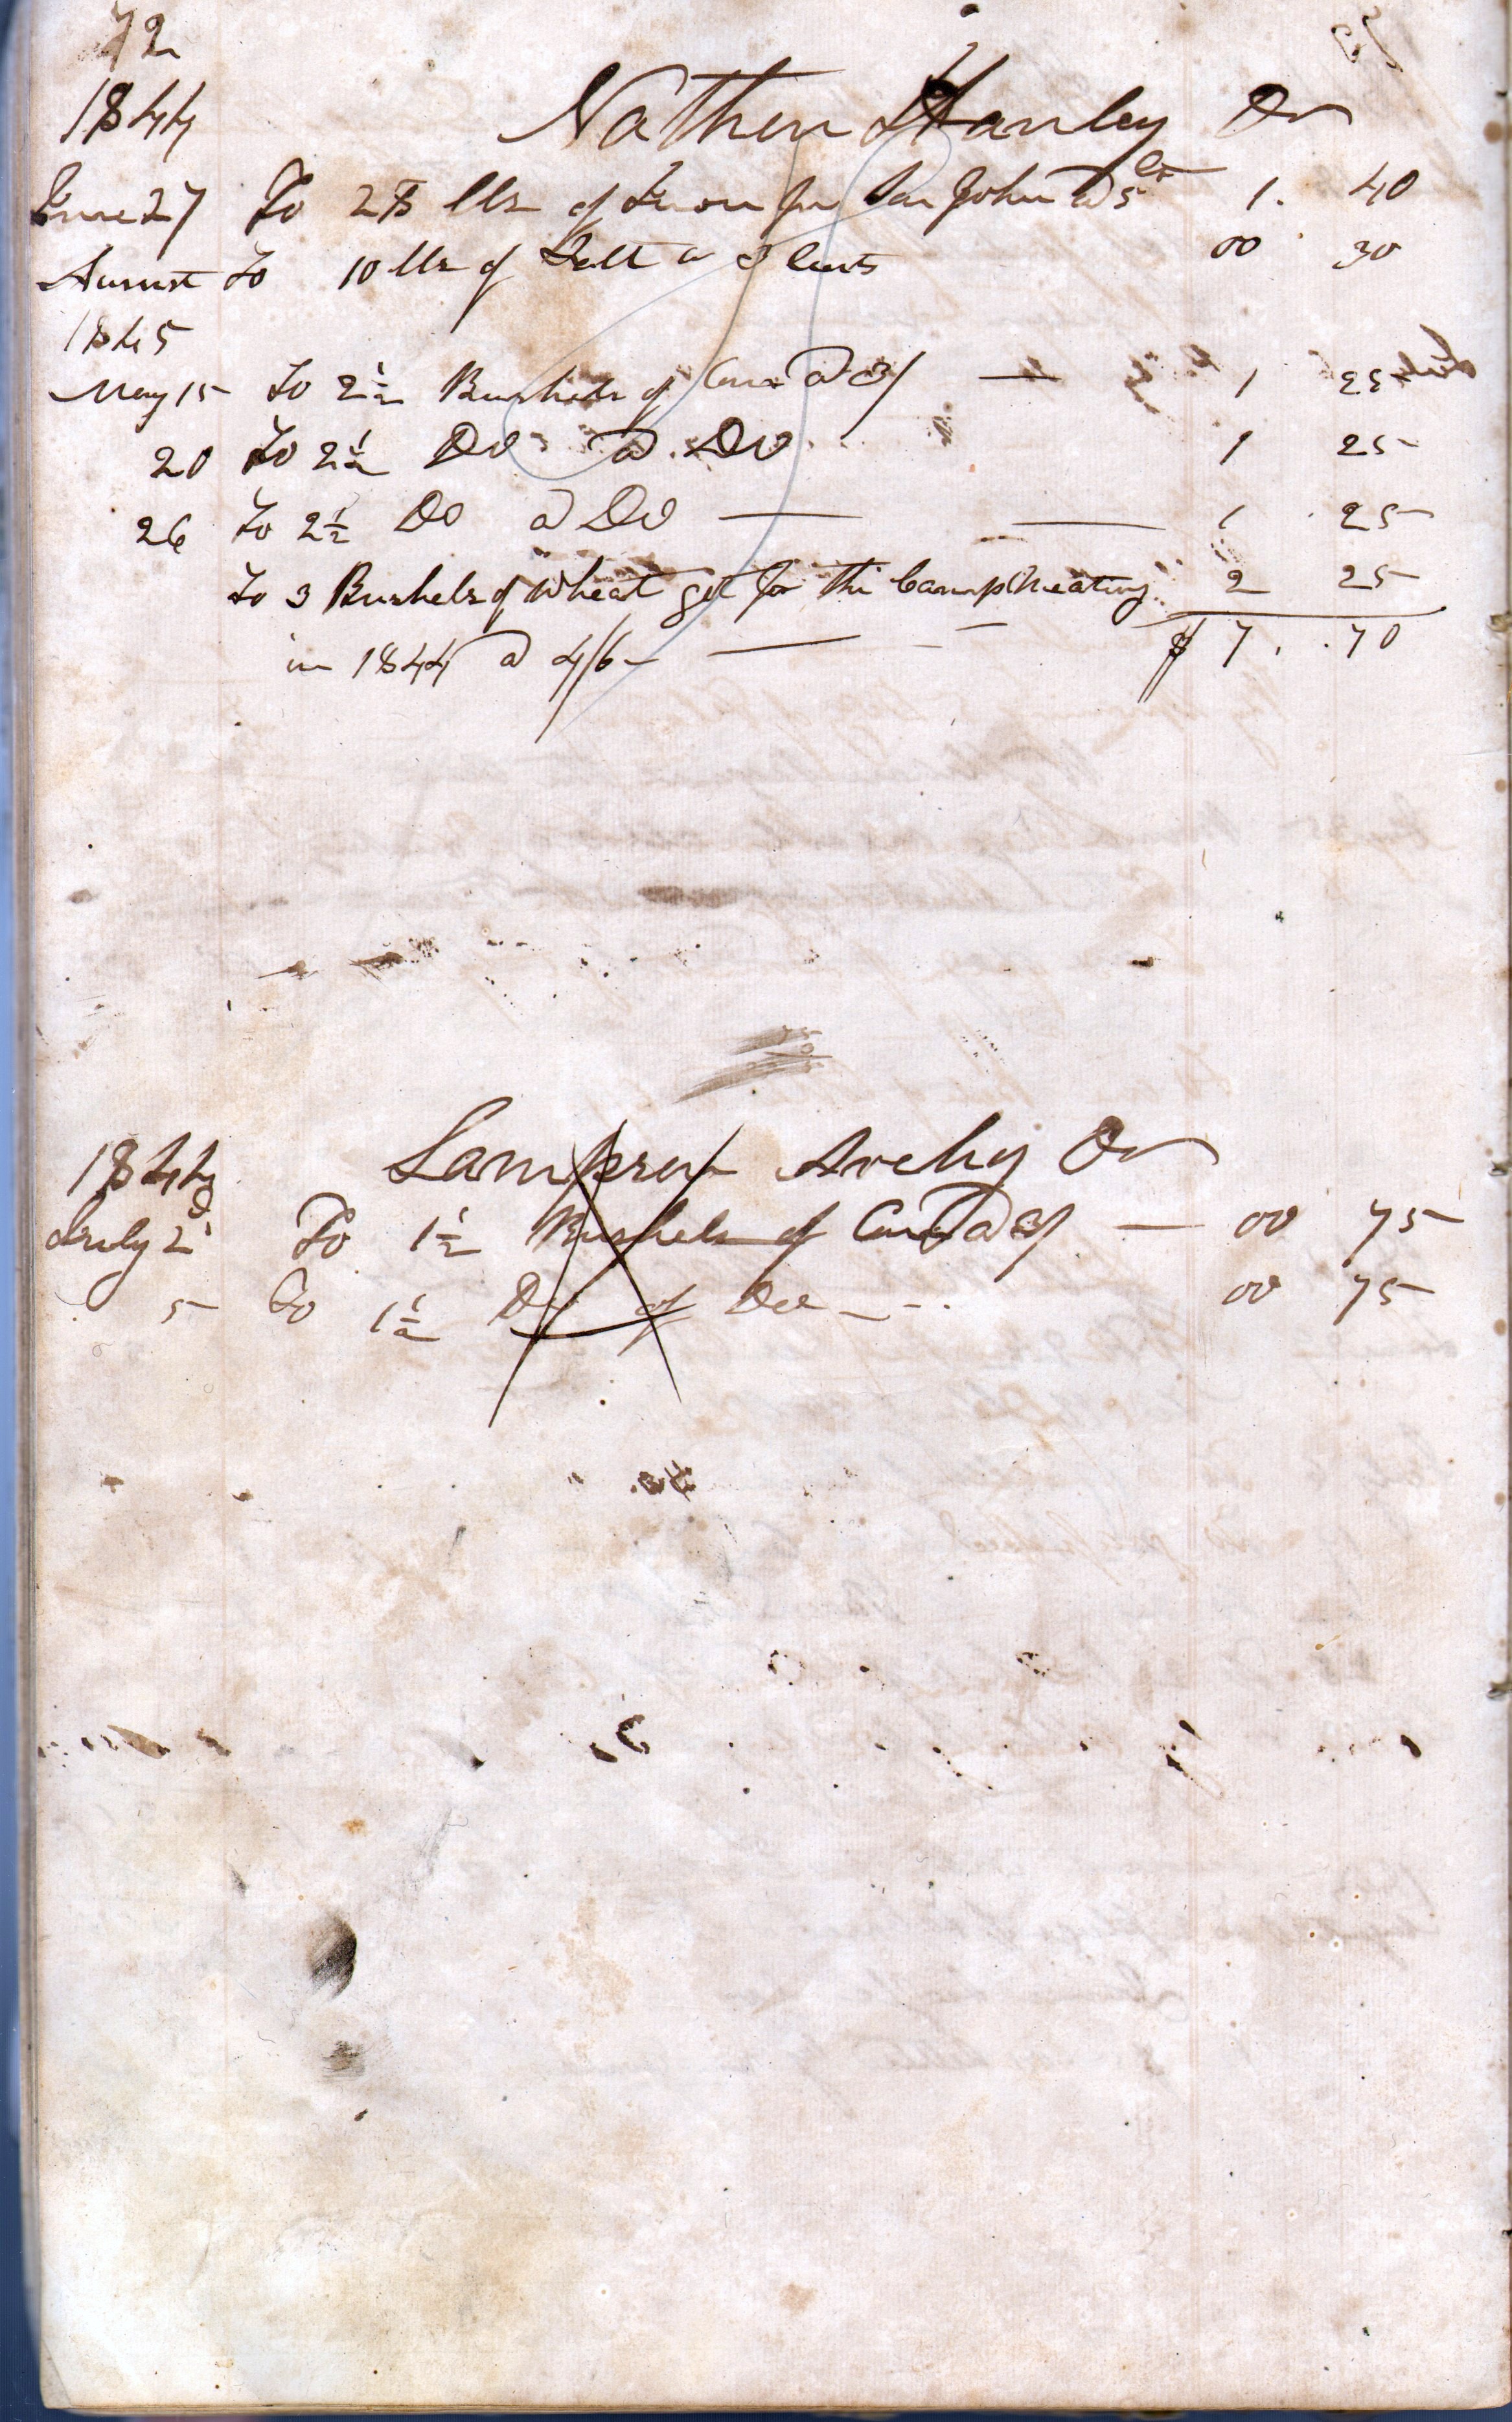 72
1844 Nathen Hanley Dr
June 27 To 28 lbs of Iron for Son John @ 5 cts 1. 40
August To 10 lbs of Salt @ 3 Cents 00 30
1845
May 15 To 2½ Bushels of Corn @ 3/ — 1 25
20 To 2½ Do @ Do 1 25
26 To 2½ Do @ Do — — 1 25
To 3 Bushels of Wheat got for the Camp Meating 2 25
in 1844 @ 4/6 — $ 7. 70
1844 Archy Dr
July 2 To 1½ Bushels of Corn @ 3/ — 00 75
5 To 1½ Do of Do — 00 75